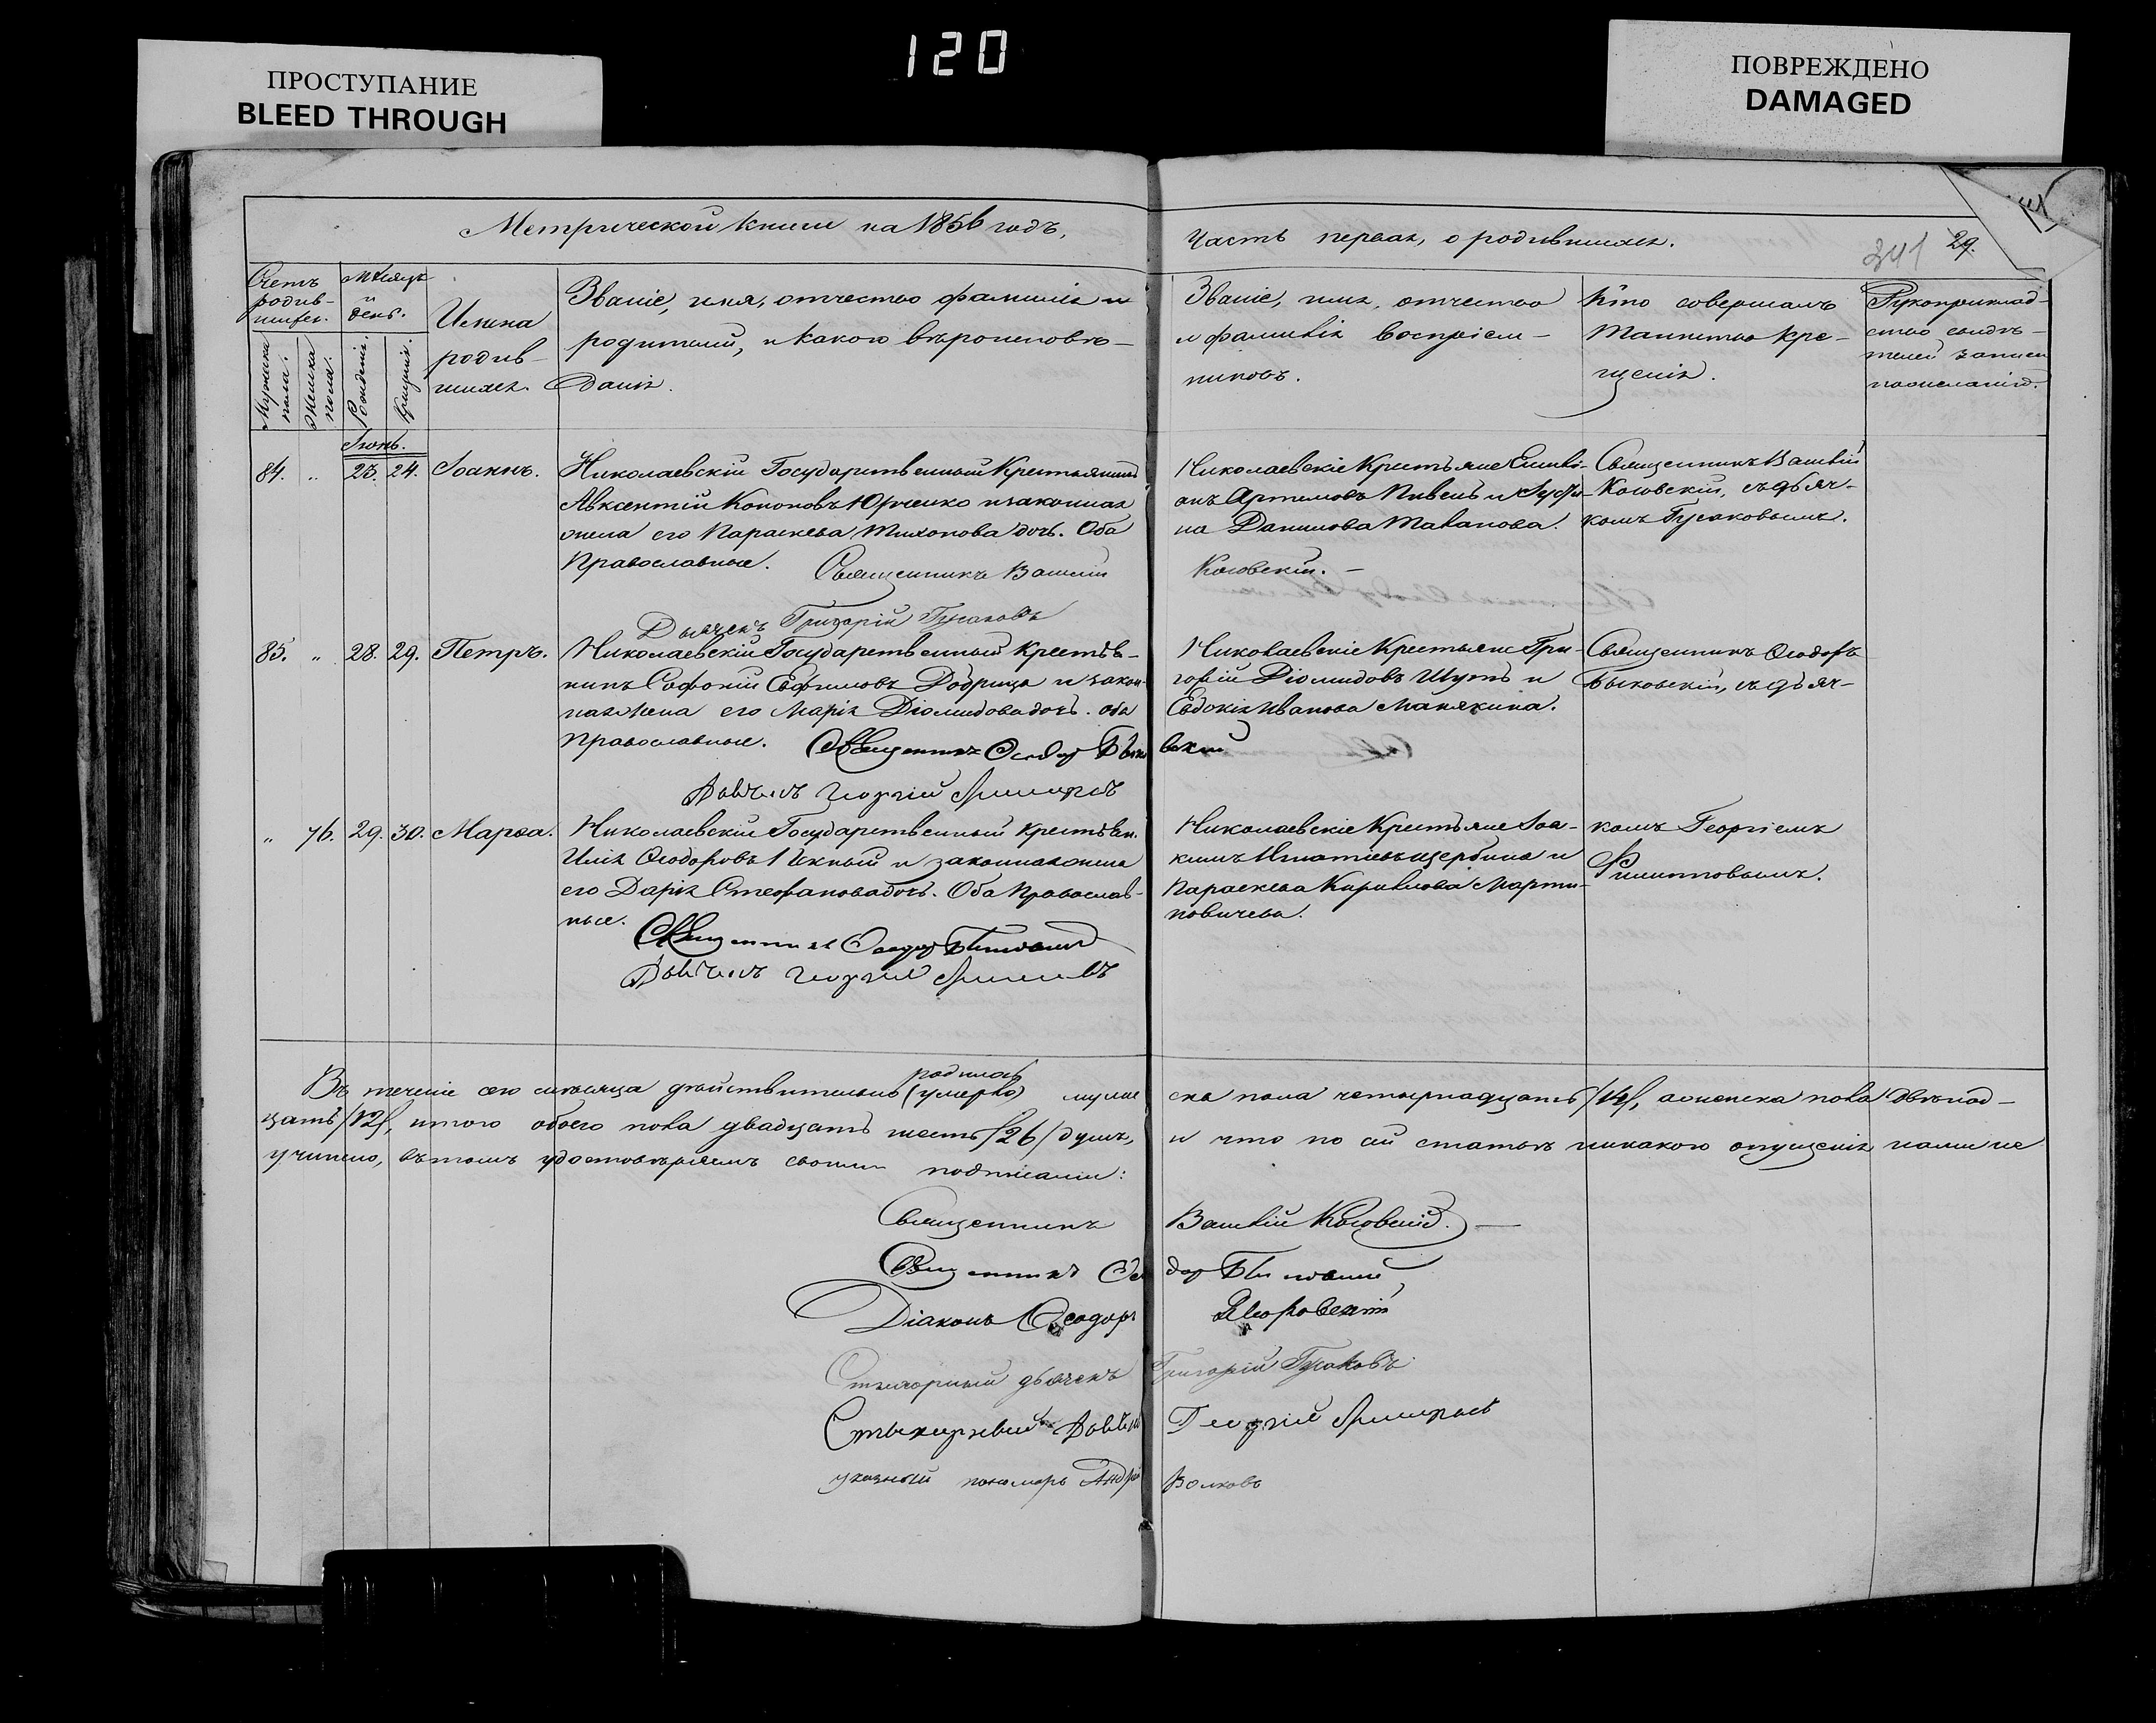 120
ПРОСТУПАНИЕ
BLEED THROUGH
ПОВРЕЖДЕНО
DAMAGED
Метрической книги на 1856 годъ,
Часть первая, о родившихся.
341
29.
Счетъ родив-шихся.
Мужеска пола.
Женска пола.
Мѣсяцъ и день.
Рожденія.
Крещенія.
Имена родив-шихся.
Званіе, имя, отчество фамилія
родителей, и какого вѣроисповѣ-
данія.
Званіе, имя, отчество
и фамилія воспріем-
никовъ.
Кто совершалъ
Таинство кре-
щенія.
Рукоприклад-
ство свидѣ-
телей записи
по желанію.
Іюнь.
84. „ 23. 24. Іоаннъ.
Николаевскій Государственный Крестьянинъ
Авксентій Кононовъ Юрченко и законная
жена его Параскева Тихонова дочь. Оба
Православные. Священникъ Василій
Николаевскіе Крестьяне Емилі-
анъ Артемовъ Пивень и Іусти-
на Данилова
Косовскій.
Священникъ Василій
Косовскій, съ дьяч-
комъ Гусаковымъ.
Дьячекъ Григорій Гусаковъ
85. „ 28. 29. Петръ.
Николаевскій Государственный Крестья-
нинъ Софоній Евфимовъ Добрица и закон-
ная жена его Марія Діомидова дочь. оба
Православные. Священникъ Ѳеодор Быковскій
Николаевскіе Крестьяне Гри-
горій Діомидовъ Шутъ и
Евдокія Иванова Манякина.
Священникъ Ѳеодоръ
Быковскій, съ дьяч-
Дьячекъ Георгій Филиповъ
„ 76. 29. 30. Марѳа.
Николаевскій Государственный Крестьян.
Илія Ѳеодоровъ и законная жена
его Дарія Стефанова дочь. Оба Православ-
ные.
Николаевскіе Крестьяне Іоа-
кимъ Игнатіевъ Щербина и
Параскева Кирилова Марти-
новичева.
комъ Георгіемъ
Филиповымъ.
Священникъ Ѳеодор Быковскій
Дьячекъ Георгій Филиповъ
родилось
Въ теченіе сего мѣсяца дѣйствительно (умерло) мужеска пола четырнадцать /14/, а женска пола двѣнад-
цать /12/, итого обоего пола двадцать шесть /26/ душъ, и что по сей статьѣ никакого опущенія нами не
учинено, въ томъ удостовѣряемъ своими подписами:
Священникъ Василій Косовскій.
Священникъ Ѳеодор Быковскій
Діаконъ Ѳеодоръ
Стихарный дьячекъ Григорій Гусаковъ
Стихарный Дьячекъ Георгій Филиповъ
указный пономарь Андрей Волковъ